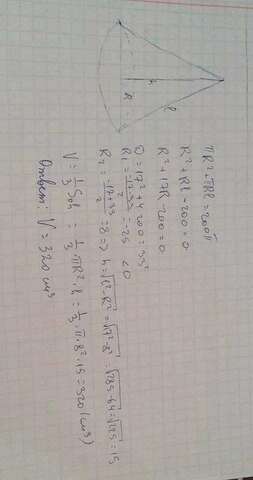 h
R
l
πR² + πRl = 200π
R² + Rl - 200 = 0
R² + 17R - 200 = 0
D = 17² + 4·200 = 33²
R₁ = (-17-33)/2 = -25 < 0
R₂ = (-17+33)/2 = 8 => h = √(l²-R²) = √(17²-8²) = √(285-64) = √225 = 15
V = 1/3 Sₒh = 1/3 · πR²·h = 1/3 · π · 8² · 15 = 320 (см³)
Ответ: V = 320 см³